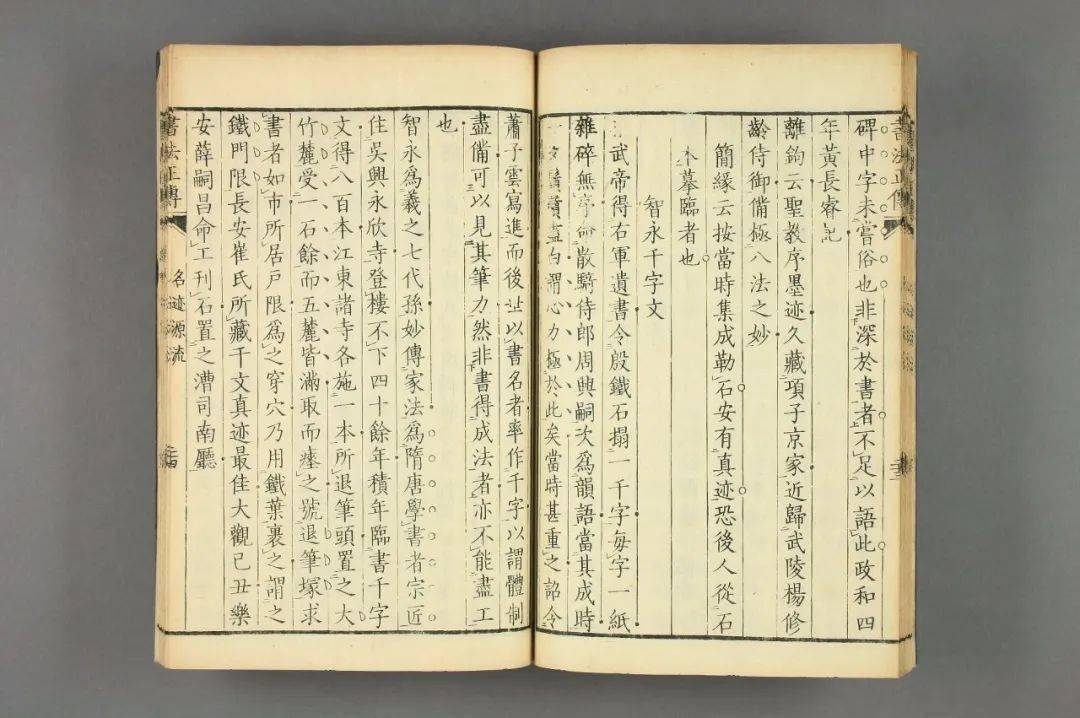 書法正傳
碑中字未嘗俗也非深於書者不足以語此政和四
年黃長睿記
離鉤云聖教序墨迹久藏項子京家近歸武陵楊修
齡侍御備極八法之妙
簡緣云按當時集成勒石安有真迹恐後人從石
本摹臨者也
智永千字文
武帝得右軍遺書令殷鐵石搨一千字每字一紙
雜碎無序命散騎侍郎周興嗣次為韻語當其成時
一夕鬚鬢盡白謂心力極於此矣當時甚重之詔令
蕭子雲寫進而後世以書名者率作千字以謂體制
盡備可以見其筆力然非書得成法者亦不能盡工
也
智永為羲之七代孫妙傳家法為隋唐學書者宗匠
住吳興永欣寺登樓不下四十餘年積年臨書千字
文得八百本江東諸寺各施一本所退筆頭置之大
竹簏受一石餘而五簏皆滿取而瘞之號退筆塚求
書者如市所居戶限為之穿穴乃用鐵葉裹之謂之
鐵門限長安崔氏所藏千文真迹最佳大觀己丑樂
安薛嗣昌命工刊石置之漕司南廳
書法正傳
名迹源流